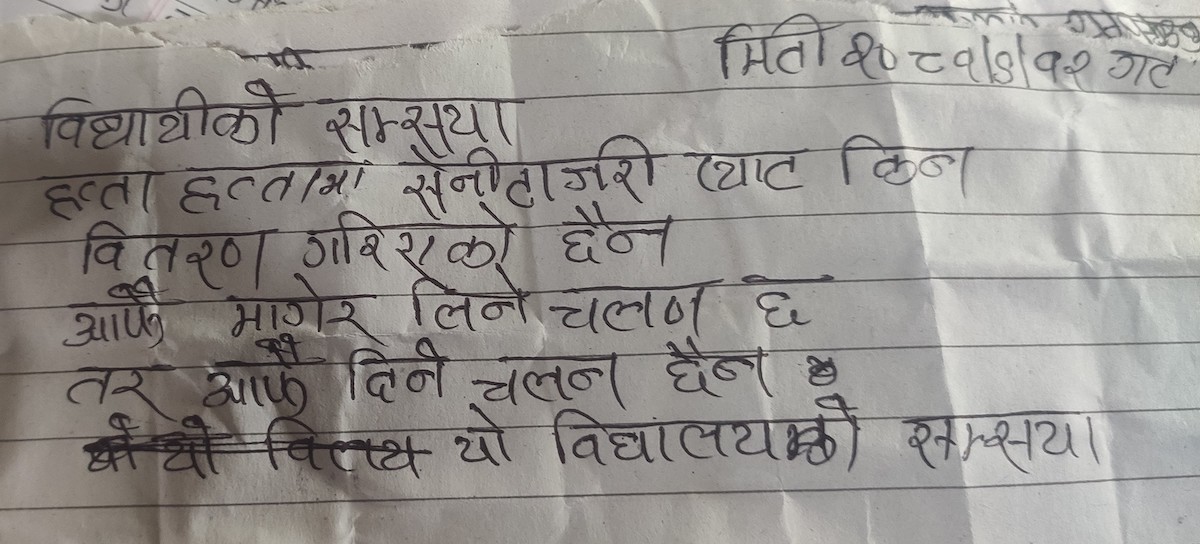 मिती २०८१।७।१२ गते
विधार्थीको सम्सया
हप्ता हप्तामा सेनीटाजरी प्याट किन
वितरण गरिएको छैन
आफै मागेर लिने चलण छ
तर आफै दिने चलन छैन
यो विधालयको सम्सया